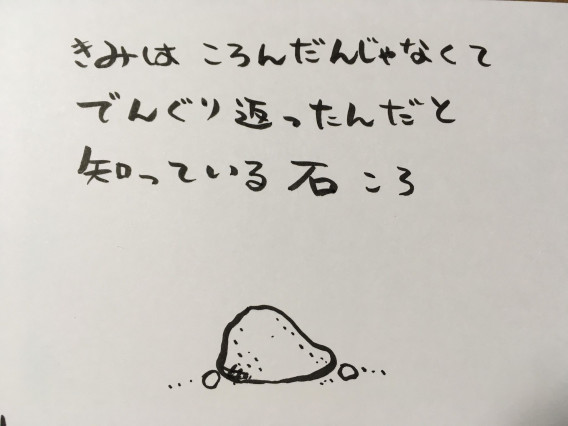 きみは ころんだんじゃなくて
でんぐり返ったんだと
知っている 石ころ